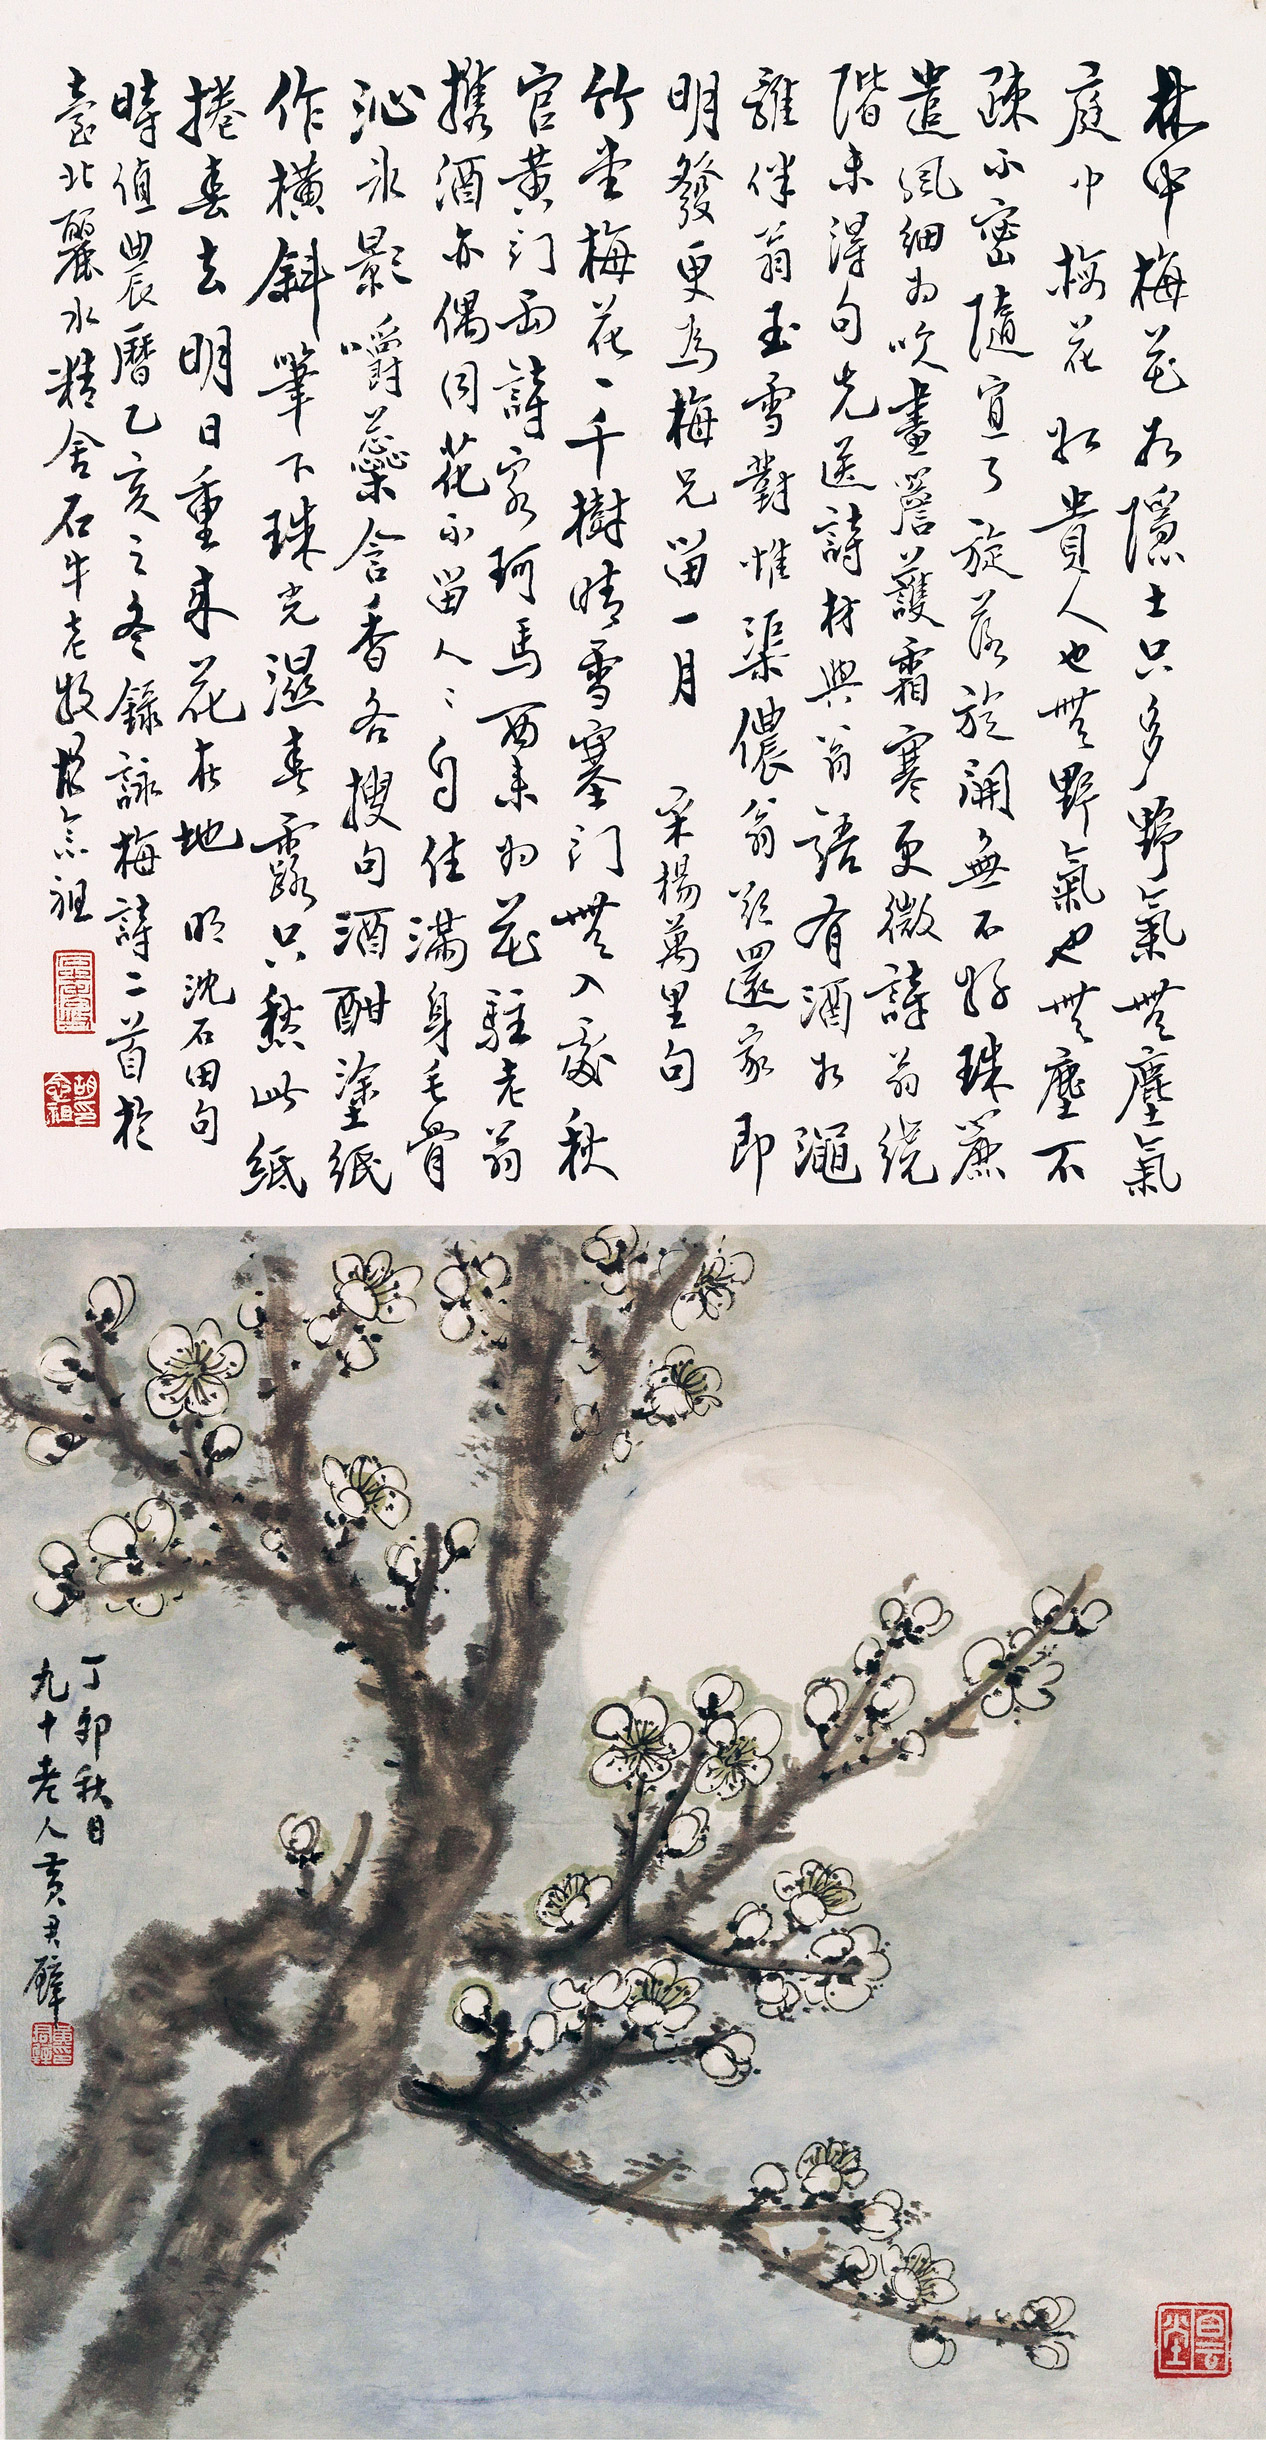 林中梅花如隱士只多野氣無塵氣
庭中梅花如貴人也無野氣也無塵不
疎不密隨宜了旋落旋開無不好珠簾
遣風細為吹畫簷護霜寒更微詩翁繞
階未得句先送詩材與翁語有酒如澠
誰伴翁玉雪對惟渠儂翁欲還家即
明發更為梅兄留一月 宋楊萬里句
竹堂梅花一千樹晴雪塞門無入處秋
官黃門兩詩客珂馬西來為花駐老翁
攜酒亦偶同花不留人人自住滿身毛骨
沁冰影嚼蕊含香各搜句酒酣塗紙
作橫斜筆下珠光濕春露只愁此紙
捲春去明日重來花在地 明沈石田句
時值農曆乙亥之冬錄詠梅詩二首於
臺北麗水精舍石牛老牧胡念祖
胡印念祖
丁卯秋日
九十老人黃君璧
黃君璧印
白雲堂